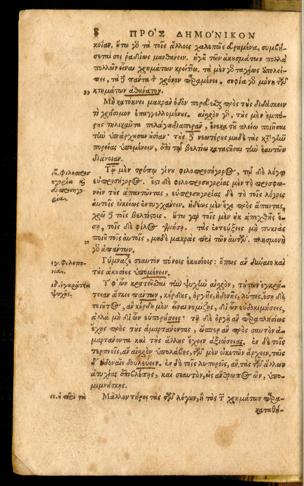 8 ΠΡΟ῀Σ ΔΗΜΟΝΙΚΟΝ
κοίαν, οὕτω γὸ τὰ τοῖς ἄλλοις χαλεπῶς εὑρημένα, συμβή-
σεταί σοι ῥᾳδίως μανθάνειν. ἡγοῦ τῶν ἀκουσμάτων πολλὰ
πολλῶν εἶναι χρημάτων κρείττω, τὰ μὲν γὸ ταχέως ἀπολεί-
πει, τὰ δὲ πάντα τὸν χρόνον παραμένει, σοφία γὸ μόνον τῶν
κτημάτων ἀθάνατον.
Μὴ κατόκνει μακρὰν ὁδὸν πορεύεσθαι πρὸς τοὺς διδάσκειν
τὶ χρήσιμον ἐπαγγελλομένους. αἰσχρὸν γὸ, τοὺς μὲν ἐμπό-
ρους τηλικαῦτα πελάγη διαπερᾶν, ἕνεκα τοῦ πλείω ποιῆσαι
τὴν ὑπάρχουσαν οὐσίαν, τοὺς δὲ νεωτέρους μηδὲ τὰς κατὰ γῆν
πορείας ὑπομένειν, ἐπὶ τῷ βελτίω καταστῆσαι τὴν ἑαυτῶν
διάνοιαν.
Τῷ μὲν τρόπῳ γίνου φιλοπροσήγορος, τῷ δὲ λόγῳ
εὐπροσήγορος. ἔστι δὲ φιλοπροσηγορίας μὲν τὸ προσφω-
νεῖν τοὺς ἀπαντῶντας, εὐπροσηγορίας δὲ τὸ τοῖς λόγοις
αὐτοῖς οἰκείως ἐντυγχάνειν. ἡδέως μὲν ἔχε πρὸς ἅπαντας,
χρῶ δὲ τοῖς βελτίστοις. οὕτω γὰρ τοῖς μὲν οὐκ ἀπεχθὴς ἔσῃ,
τοῖς δὲ φίλος γενήσῃ. τὰς ἐντεύξεις μὴ ποιοῦ πυκνὰς
τοῖς αὐτοῖς, μηδὲ μακρὰς περὶ τῶν αὐτῶν. πλησμονὴ
γὸ ἁπάντων.
Γύμναζε σεαυτὸν πόνοις ἑκουσίοις: ὅπως ἂν δύναιο καὶ
τοὺς ἀκουσίους ὑπομένειν.
Ὑφ' ὧν κρατεῖσθαι τὴν ψυχὴν αἰσχρὸν, τούτων ἐγκρά-
τειαν ἄσκει πάντων, κέρδους, ὀργῆς, ἡδονῆς, λύπης. ἔσῃ δὲ
τοιοῦτος, ἂν κέρδη μὲν εἶναι νομίζῃς, δι' ὧν εὐδοκιμήσεις,
ἀλλὰ μὴ δι' ὧν εὐπορήσεις: τῇ δὲ ὀργῇ ἂν παραπλησίως
ἔχῃς πρὸς τοὺς ἁμαρτάνοντας, ὥσπερ ἂν πρὸς σεαυτὸν ἁ-
μαρτάνοντα καὶ τοὺς ἄλλους ἔχειν ἀξιώσειας. ἐν δὲ τοῖς
τερπνοῖς, ἂν αἰσχρὸν ὑπολάβῃς, τῶν μὲν οἰκετῶν ἄρχειν, ταῖς
δ' ἡδοναῖς δουλεύειν. ἐν δὲ τοῖς λυπηροῖς, ἂν τὰς τῶν ἄλλων
ἀτυχίας ἐπιβλέπῃς, καὶ σεαυτὸν, ὡς ἄνθρωπος ὢν, ὑπο-
μιμνήσκῃς.
Μᾶλλον τήρει τὰς τῶν λόγων, ἢ τὰς τῶν χρημάτων παρα-
καταθή-